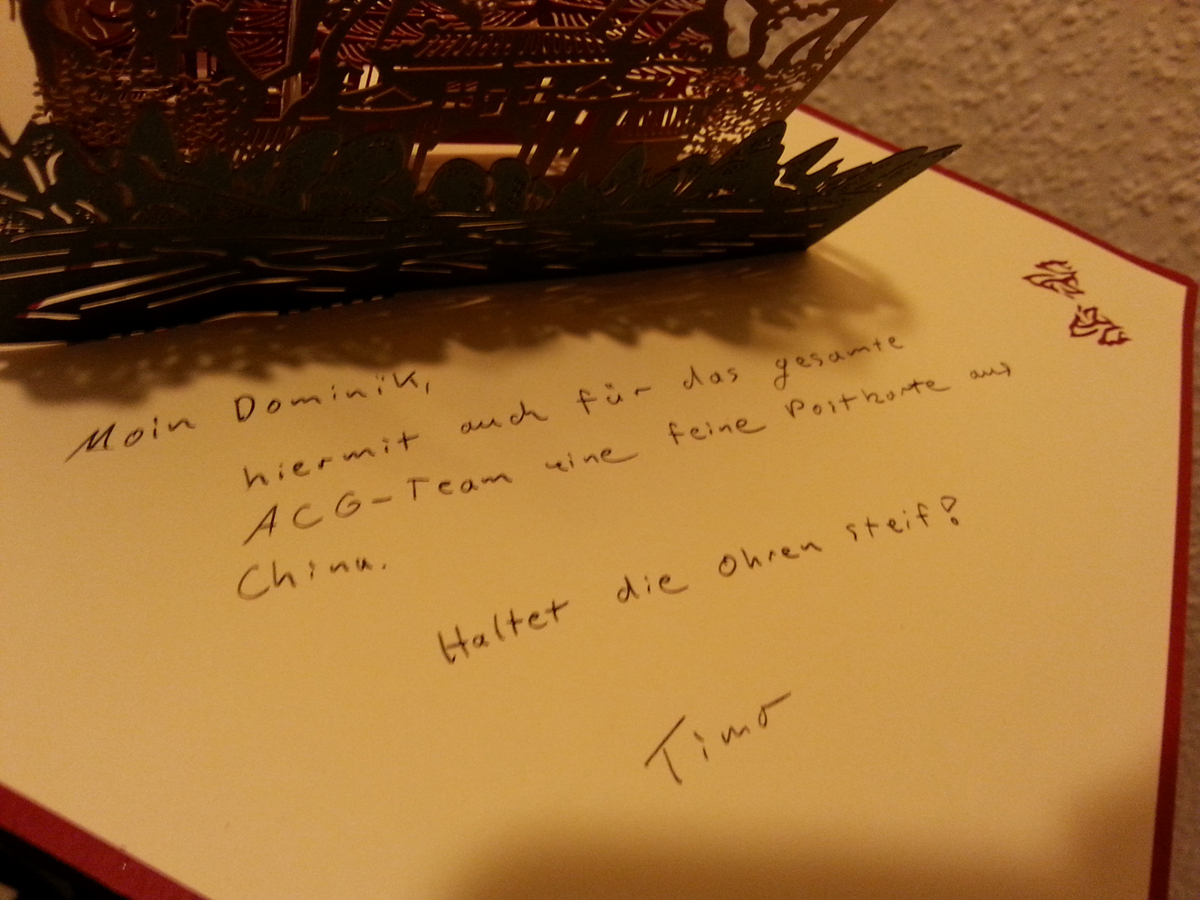 Moin Dominik,
hiermit auch für das gesamte
ACG-Team eine feine Postkarte aus
China.
Haltet die Ohren steif!
Timo